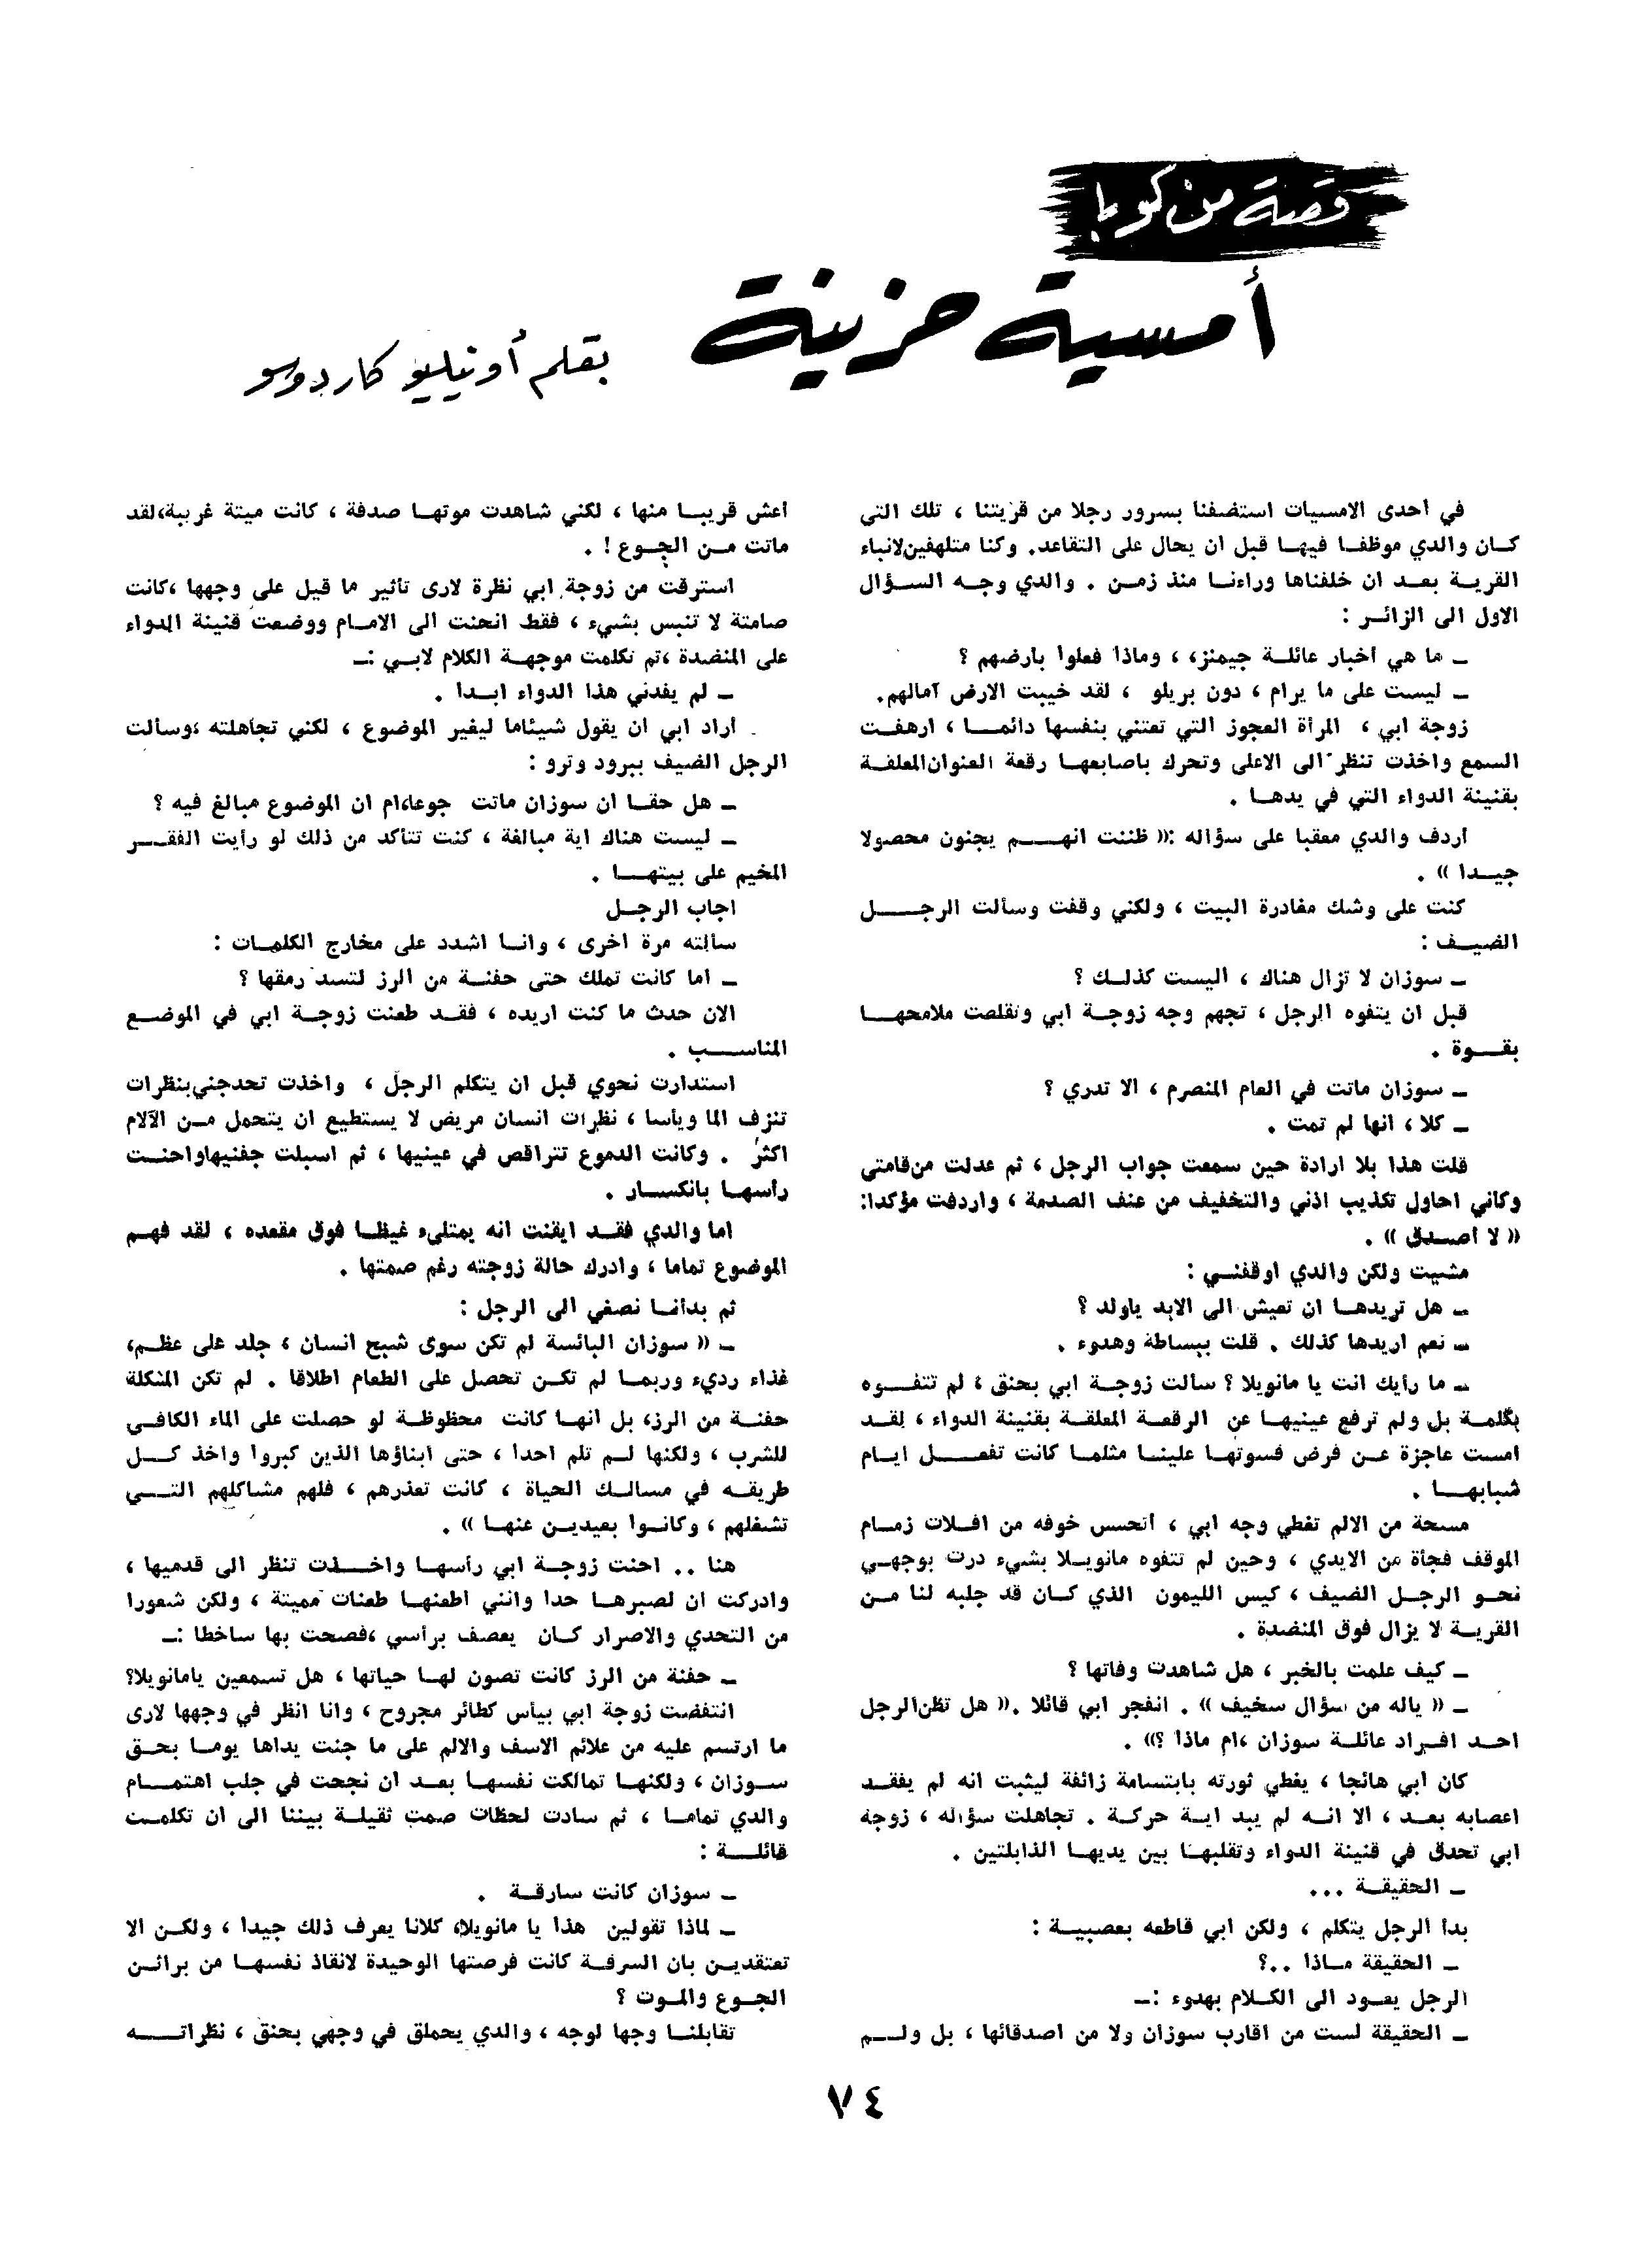 قصة من كوبا
أمسية حزينة
بقلم أونيليو كاردوسو
في احدى الامسيات استضفنا بسرور رجلا من قريتنا ، تلك التي
كـان والدي موظفـا فيهـا قبل ان يحال على التقاعد. وكنا متلهفين لانباء
القريـة بعـد ان خلفناها وراءنـا منذ زمـن . والدي وجـه السـؤال
الاول الى الزائـر :
ـ ما هي اخبار عائلـة جيمنز، ، وماذا فعلوا بارضهم ؟
ـ ليست على ما يرام ، دون بريلو ، لقد خيبت الارض آمالهم.
زوجة ابي ، المرأة العجوز التي تعتني بنفسها دائمـا ، ارهفـت
السمع واخذت تنظر الى الاعلى وتحرك باصابعهـا رقعة العنوان المعلقـة
بقنينة الدواء التي في يدهـا .
اردف والدي معقبا على سؤاله :« ظننت انهـم يجنون محصولا
جيـدا » .
كنت على وشك مغادرة البيت ، ولكني وقفت وسألت الرجـل
الضيـف :
ـ سوزان لا تزال هناك ، اليست كذلـك ؟
قبل ان يتفوه الرجل ، تجهم وجه زوجـة ابي وتقلصت ملامحهـا
بقـوة .
ـ سوزان ماتت في العام المنصرم ، الا تدري ؟
ـ كلا ، انها لم تمت .
قلت هذا بلا ارادة حين سمعت جواب الرجل ، ثم عدلت من قامتي
وكاني احاول تكذيب اذني والتخفيف من عنف الصدمة ، واردفت مؤكدا:
« لا اصـدق » .
مشيت ولكن والدي اوقفنـي :
ـ هل تريدهـا ان تعيش الى الابد ياولد ؟
ـ نعم اريدها كذلك . قلت ببساطة وهدوء .
ـ ما رأيك انت يا مانويلا ؟ سألت زوجـة ابي بحنق ، لم تتفـوه
بكلمـة بل ولم ترفع عينيهـا عن الرقعـة المعلقـة بقنينة الدواء ، لقـد
امست عاجزة عـن فرض قسوتهـا علينـا مثلمـا كانت تفعـل ايـام
شبابهـا .
مسحة من الالم تغطي وجه ابي ، اتحسس خوفه من افـلات زمـام
الموقف فجأة من الايدي ، وحين لم تتفوه مانويـلا بشيء درت بوجهـي
نحـو الرجـل الضيف ، كيس الليمون الذي كـان قد جلبه لنا مـن
القريـة لا يزال فوق المنضدة .
ـ كيف علمت بالخبر ، هل شاهدت وفاتها ؟
ـ « ياله من سؤال سخيف » . انفجر ابي قائلا .« هل تظن الرجل
احـد افـراد عائلـة سوزان ،ام ماذا ؟» .
كان ابي هائجا ، يغطي ثورته بابتسامة زائفة ليثبت انه لم يفقـد
اعصابه بعـد ، الا انـه لم يبد ايـة حركـة . تجاهلت سؤاله ، زوجة
ابي تحدق في قنينة الدواء وتقلبهـا بين يديهـا الذابلتين .
ـ الحقيقـة ...
بدا الرجل يتكلم ، ولكن ابي قاطعه بعصبيـة :
ـ الحقيقة مـاذا ..؟
الرجل يعـود الى الكـلام بهدوء :ـ
ـ الحقيقة لست من اقارب سوزان ولا من اصدقائها ، بل ولـم
اعش قريبـا منها ، لكني شاهدت موتهـا صدفة ، كانت ميتة غريبة،لقد
ماتت مـن الجـوع ! .
استرقت من زوجة ابي نظرة لارى تأثير ما قيل على وجهها ،كانت
صامتة لا تنبس بشيء ، فقط انحنت الى الامـام ووضعت قنينة الدواء
على المنضدة ،ثم تكلمت موجهـة الكلام لابـي :ـ
ـ لم يفدني هذا الدواء ابـدا .
اراد ابي ان يقول شيئاما ليغير الموضوع ، لكني تجاهلته ،وسألت
الرجل الضيف ببرود وترو :
ـ هل حقـا ان سوزان ماتت جوعا،ام ان الموضوع مبالغ فيه ؟
ـ ليست هناك اية مبالغة ، كنت تتأكد من ذلك لو رأيت الفقـر
المخيم على بيتهـا .
اجاب الرجـل
سألته مرة اخرى ، وانـا اشدد على مخارج الكلمـات :
ـ اما كانت تملك حتى حفنـة من الرز لتسد رمقها ؟
الان حدث ما كنت اريده ، فقـد طعنت زوجـة ابي في الموضـع
المناسـب .
استدارت نحوي قبل ان يتكلم الرجل ، واخذت تحدجني بنظرات
تنزف الما ويأسا ، نظرات انسان مريض لا يستطيع ان يتحمل مـن الآلام
اكثر . وكانت الدموع تتراقص في عينيها ، ثم اسبلت جفنيهاواحنـت
رأسهـا بانكسـار .
اما والدي فقـد ايقنت انه يمتلىء غيظـا فوق مقعده ، لقد فهـم
الموضوع تماما ، وادرك حالة زوجته رغم صمتها .
ثم بدأنـا نصغي الى الرجل :
ـ « سوزان البائسة لم تكن سوى شبح انسان ، جلد على عظـم،
غذاء رديء وربمـا لم تكـن تحصل على الطعام اطلاقا . لم تكن المشكلة
حفنـة من الرز، بل انهـا كانت محظوظـة لو حصلت على الماء الكافـي
للشرب ، ولكنها لـم تلم احدا ، حتى ابناؤها الذين كبروا واخذ كـل
طريقـه في مسالـك الحياة ، كانت تعذرهم ، فلهم مشاكلهم التـي
تشغلهم ، وكانـوا بعيديـن عنهـا » .
هنا .. احنت زوجـة ابي رأسهـا واخـذت تنظر الى قدميها ،
وادركت ان لصبرهـا حدا وانني اطعنهـا طعنات مميتة ، ولكن شعورا
من التحدي والاصرار كـان يعصف برأسي ،فصحت بها ساخطا :ـ
ـ حفنة من الرز كانت تصون لهـا حياتها ، هل تسمعين يامانويلا؟
انتفضت زوجة ابي بيأس كطائر مجروح ، وانا انظر في وجهها لارى
ما ارتسم عليه من علائم الاسف والالم على ما جنت يداها يومـا بحـق
سـوزان ، ولكنهـا تمالكت نفسهـا بعـد ان نجحت في جلب اهتمـام
والدي تمامـا ، ثم سادت لحظات صمت ثقيلـة بيننا الى ان تكلمـت
قائلـة :
ـ سوزان كانت سارقـة .
ـ لماذا تقولين هذا يا مانويلا، كلانا يعرف ذلك جيدا ، ولكـن الا
تعتقديـن بان السرقـة كانت فرصتها الوحيدة لانقاذ نفسهـا من براثـن
الجـوع والمـوت ؟
تقابلنـا وجهـا لوجه ، والدي يحملق في وجهي بحنق ، نظراتـه
٧٤